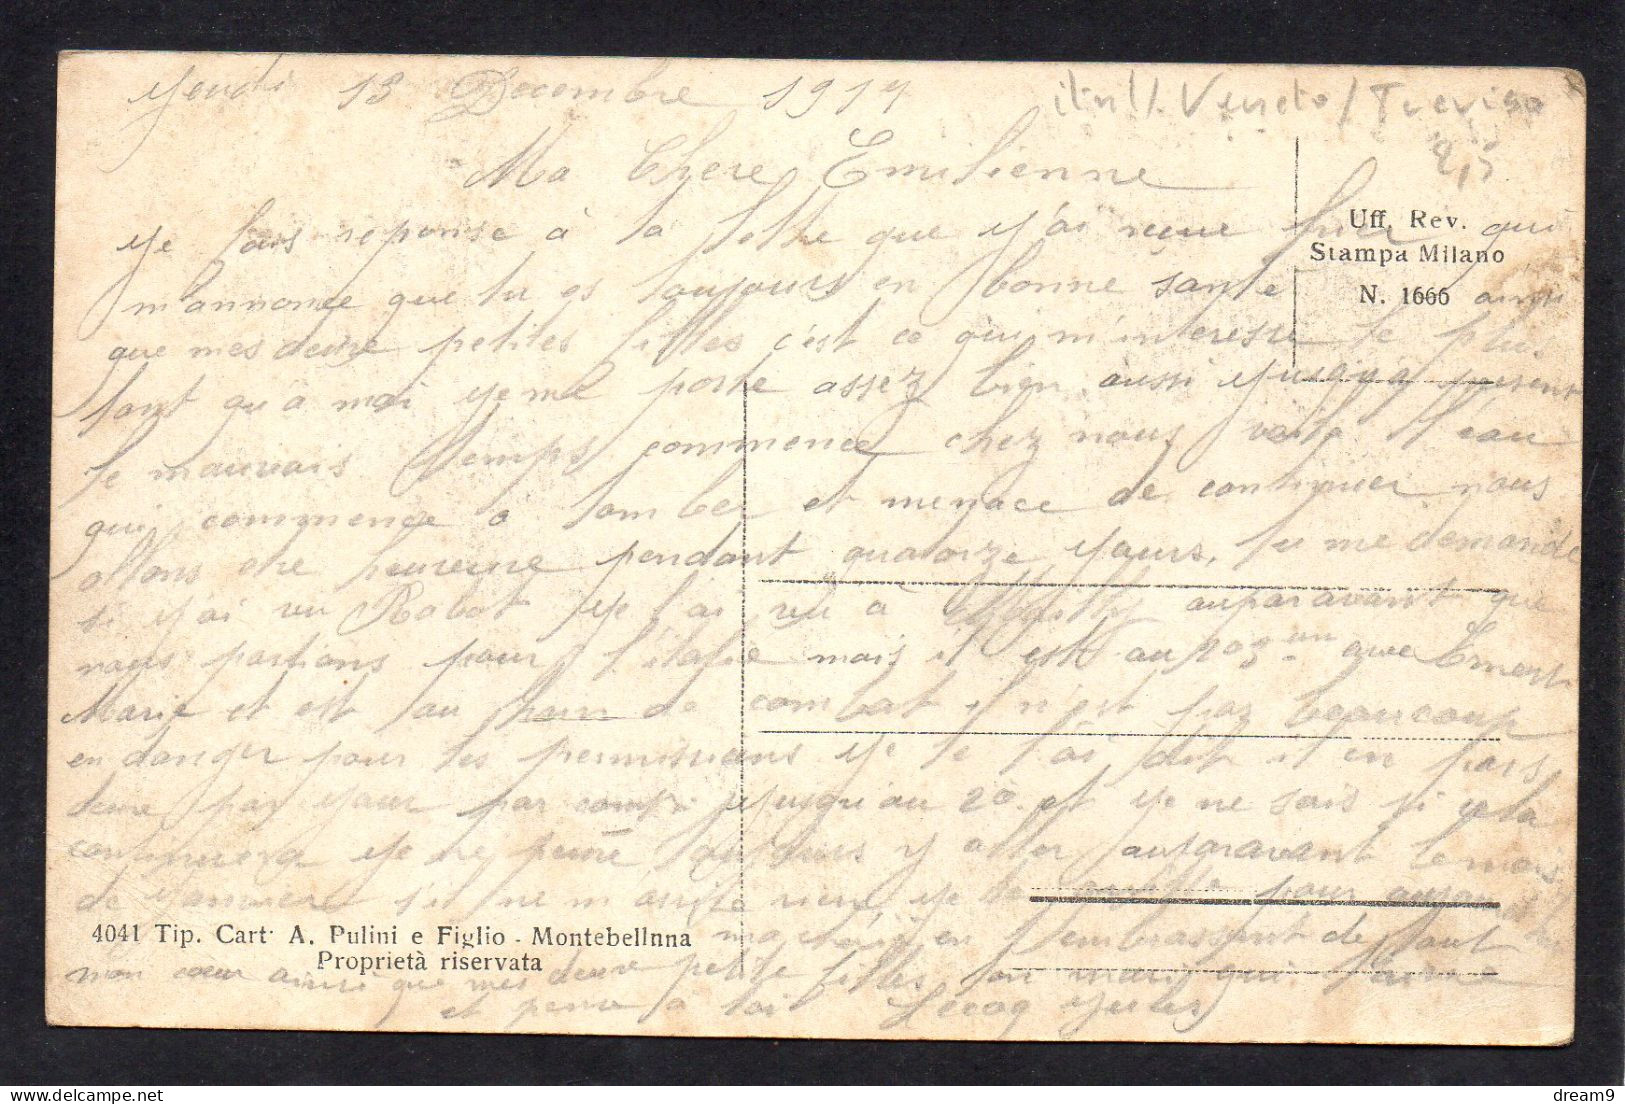 Jeudi 13 Decembre 1917
Ital/. Veneto / Treviso
Ma Chere Emilienne
je fais reponse à la lettre que j'ai reçue hier qui
m'annonce que tu es toujours en bonne santé ainsi
que mes deuxe petites filles c'est ce qui m'interesse le plus
tant qu'à moi je me porte assez bien aussi jusqu'à present
le mauvais temps commence chez nous voila l'eau
qui commence a tomber et menace de continuer nous
allons etre heureuxe pendant quatorze jours, tu me demande
si j'ai vu Rabot je l'ai vu à auparavant que
nous partions pour l'italie mais il est au 203 que Ernest
Marie et est au train de combat il n'est pas beaucoup
en danger pour les permissions je te l'ai dit il en pars
deuxe par jour par comp. jusqu'au 20. et je ne sais si cela
continuera je ne peuxe y aller auparavant le mois
de Janvier s'il ne m'arrive rien, je te quitte pour aujourd'hui
ma chérie en t'embrassant de tout
mon cœur ainsi que mes deuxe petite filles ton mari qui t'aime
et pense à toi Lecoq Jules
Uff. Rev.
Stampa Milano
N. 1666
4041 Tip. Cart. A. Pulini e Figlio - Montebellnna
Proprietà riservata
© dream9